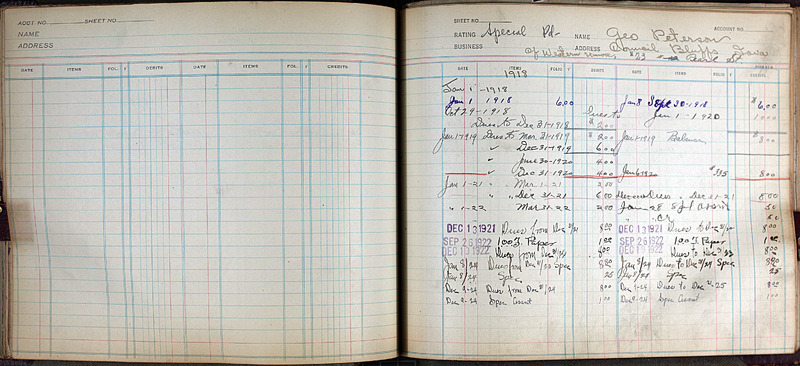 ACCT. NO. SHEET NO.
NAME
ADDRESS
DATE ITEMS FOL. DEBITS DATE ITEMS FOL. CREDITS
SHEET NO. ACCOUNT NO.
RATING Special Pd. NAME Geo Peterson
BUSINESS ADDRESS Council Bluffs Iowa
of Western #23 Pearl St.
DATE ITEMS FOLIO DEBITS DATE ITEMS FOLIO CREDITS
1918
Jan 1 - 1918
Jan 1 1918 6.00 Jan 8 Sept 30-1918 $6.00
Oct 29-1918 Dues to Jan 1-1920
Dues to Dec 31-1918 $2.00
Jan 1-1919 Dues to Mar 31-1919 $2.00 Jan 1-1919 Balance $3.00
" Dec 31-1919 6.00
" June 30-1920 4.00
" Dec 31-1920 4.00 Jan 6 1920 #335 8.00
Jan 1-21 " Mar 1-21 2.00
" " Dec 31-21 6.00 Dec 31-21 8.00
" 1-22 " Mar 31-22 2.00 Jan 28
cr
DEC 13 1921 Dues from Dec 31/21 8.00 DEC 13 1921 Dues to Dec 8.00
SEP 26 1922 100 J. Paper 1.00 SEP 26 1922 100 J. Paper 1.00
DEC 19 1922 Dues from Dec 8.00 DEC 19 1922 Dues to Dec 31/23 8.00
Jan 8/24 Dues from Dec 31/23 Spec 8.00 Jan 8/24 Dues to Dec 31/24 Spec 8.00
Jan 8/24 Spec 25 Jan 8/24 Spec 25
Dec 9-24 Dues from Dec 31/24 8.00 Dec 9-24 Dues to Dec 31-25 8.00
Dec 9-24 Spec Assmt 1.00 Dec 9-24 Spec Assmt 1.00